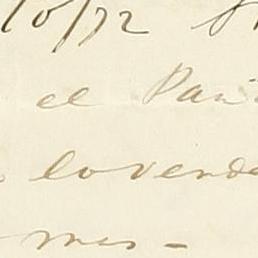 10/72
el Pau
lo vende
mes -